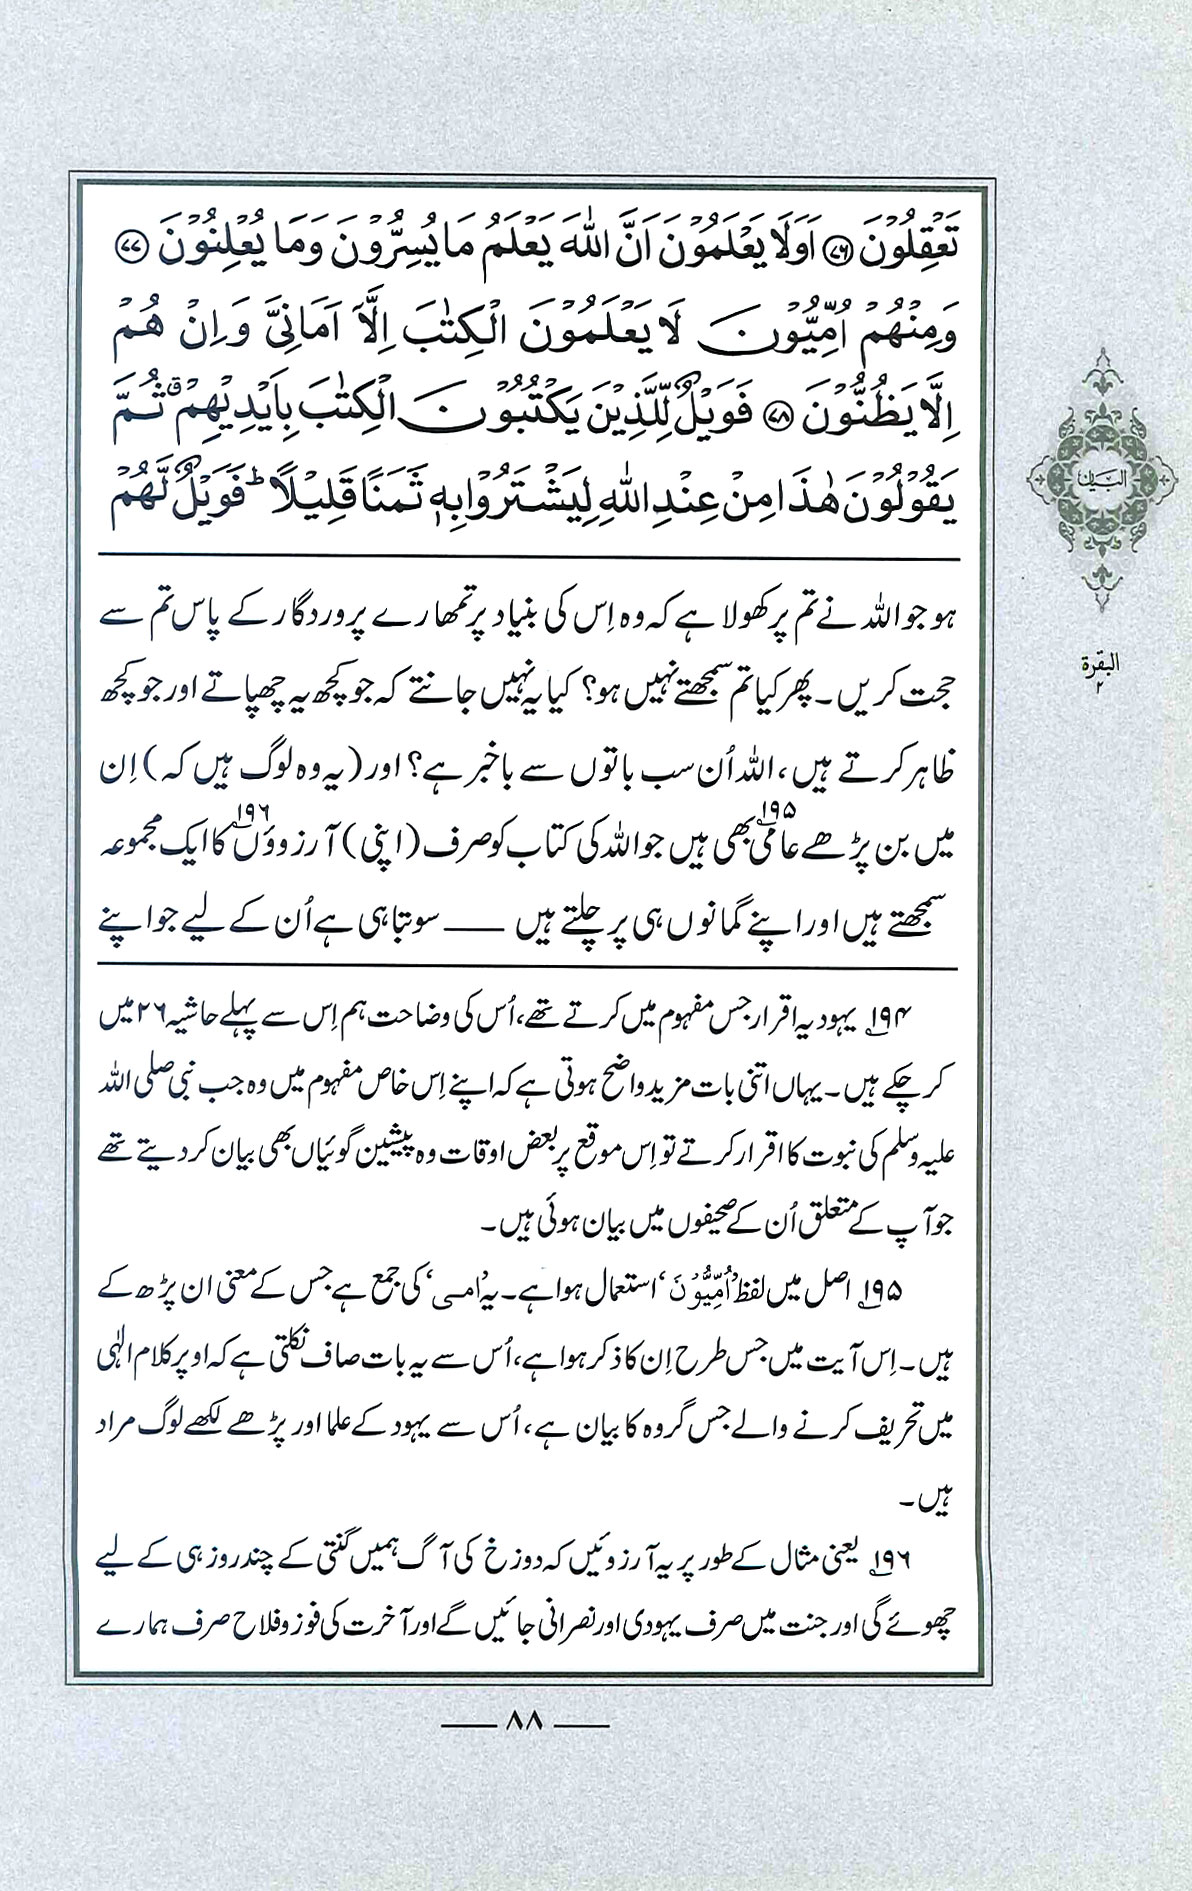 تَعْقِلُوْنَ ﴿٧٦﴾ اَوَلَا يَعْلَمُوْنَ اَنَّ اللّٰهَ يَعْلَمُ مَا يُسِرُّوْنَ وَمَا يُعْلِنُوْنَ ﴿٧٧﴾
وَمِنْهُمْ اُمِّيُّوْنَ لَا يَعْلَمُوْنَ الْكِتٰبَ اِلَّآ اَمَانِيَّ وَاِنْ هُمْ
اِلَّا يَظُنُّوْنَ ﴿٧٨﴾ فَوَيْلٌ لِّلَّذِيْنَ يَكْتُبُوْنَ الْكِتٰبَ بِاَيْدِيْهِمْ ۫ ثُمَّ
يَقُوْلُوْنَ هٰذَا مِنْ عِنْدِ اللّٰهِ لِيَشْتَرُوْا بِهٖ ثَمَنًا قَلِيْلًا ؕ فَوَيْلٌ لَّهُمْ
ہو جو اللہ نے تم پر کھولا ہے کہ وہ اِس کی بنیاد پر تمھارے پروردگار کے پاس تم سے
حجت کریں۔ پھر کیا تم سمجھتے نہیں ہو؟ کیا یہ نہیں جانتے کہ جو کچھ یہ چھپاتے اور جو کچھ
ظاہر کرتے ہیں، اللہ اُن سب باتوں سے باخبر ہے؟ اور (یہ وہ لوگ ہیں کہ) اِن
میں بن پڑھے عامی۱۹۵ بھی ہیں جو اللہ کی کتاب کو صرف (اپنی) آرزووں۱۹۶ کا ایک مجموعہ
سمجھتے ہیں اور اپنے گمانوں ہی پر چلتے ہیں ــــــ سو تباہی ہے اُن کے لیے جو اپنے
۱۹۴ یہود یہ اقرار جس مفہوم میں کرتے تھے، اُس کی وضاحت ہم اِس سے پہلے حاشیہ ۲۶ میں
کر چکے ہیں۔ یہاں اتنی بات مزید واضح ہوتی ہے کہ اپنے اِس خاص مفہوم میں وہ جب نبی صلی اللہ
علیہ وسلم کی نبوت کا اقرار کرتے تو اِس موقع پر بعض اوقات وہ پیشین گوئیاں بھی بیان کر دیتے تھے
جو آپ کے متعلق اُن کے صحیفوں میں بیان ہوئی ہیں۔
۱۹۵ اصل میں لفظ ’اُمِّيُّوْنَ‘ استعمال ہوا ہے۔ یہ ’امی‘ کی جمع ہے جس کے معنی ان پڑھ کے
ہیں۔ اِس آیت میں جس طرح اِن کا ذکر ہوا ہے، اُس سے یہ بات صاف نکلتی ہے کہ اوپر کلام الٰہی
میں تحریف کرنے والے جس گروہ کا بیان ہے، اُس سے یہود کے علما اور پڑھے لکھے لوگ مراد
ہیں۔
۱۹۶ یعنی مثال کے طور پر یہ آرزوئیں کہ دوزخ کی آگ ہمیں گنتی کے چند روز ہی کے لیے
چھوئے گی اور جنت میں صرف یہودی اور نصرانی جائیں گے اور آخرت کی فوز و فلاح صرف ہمارے
ــــ ۸۸ ــــ
البیان
البقرۃ
۲